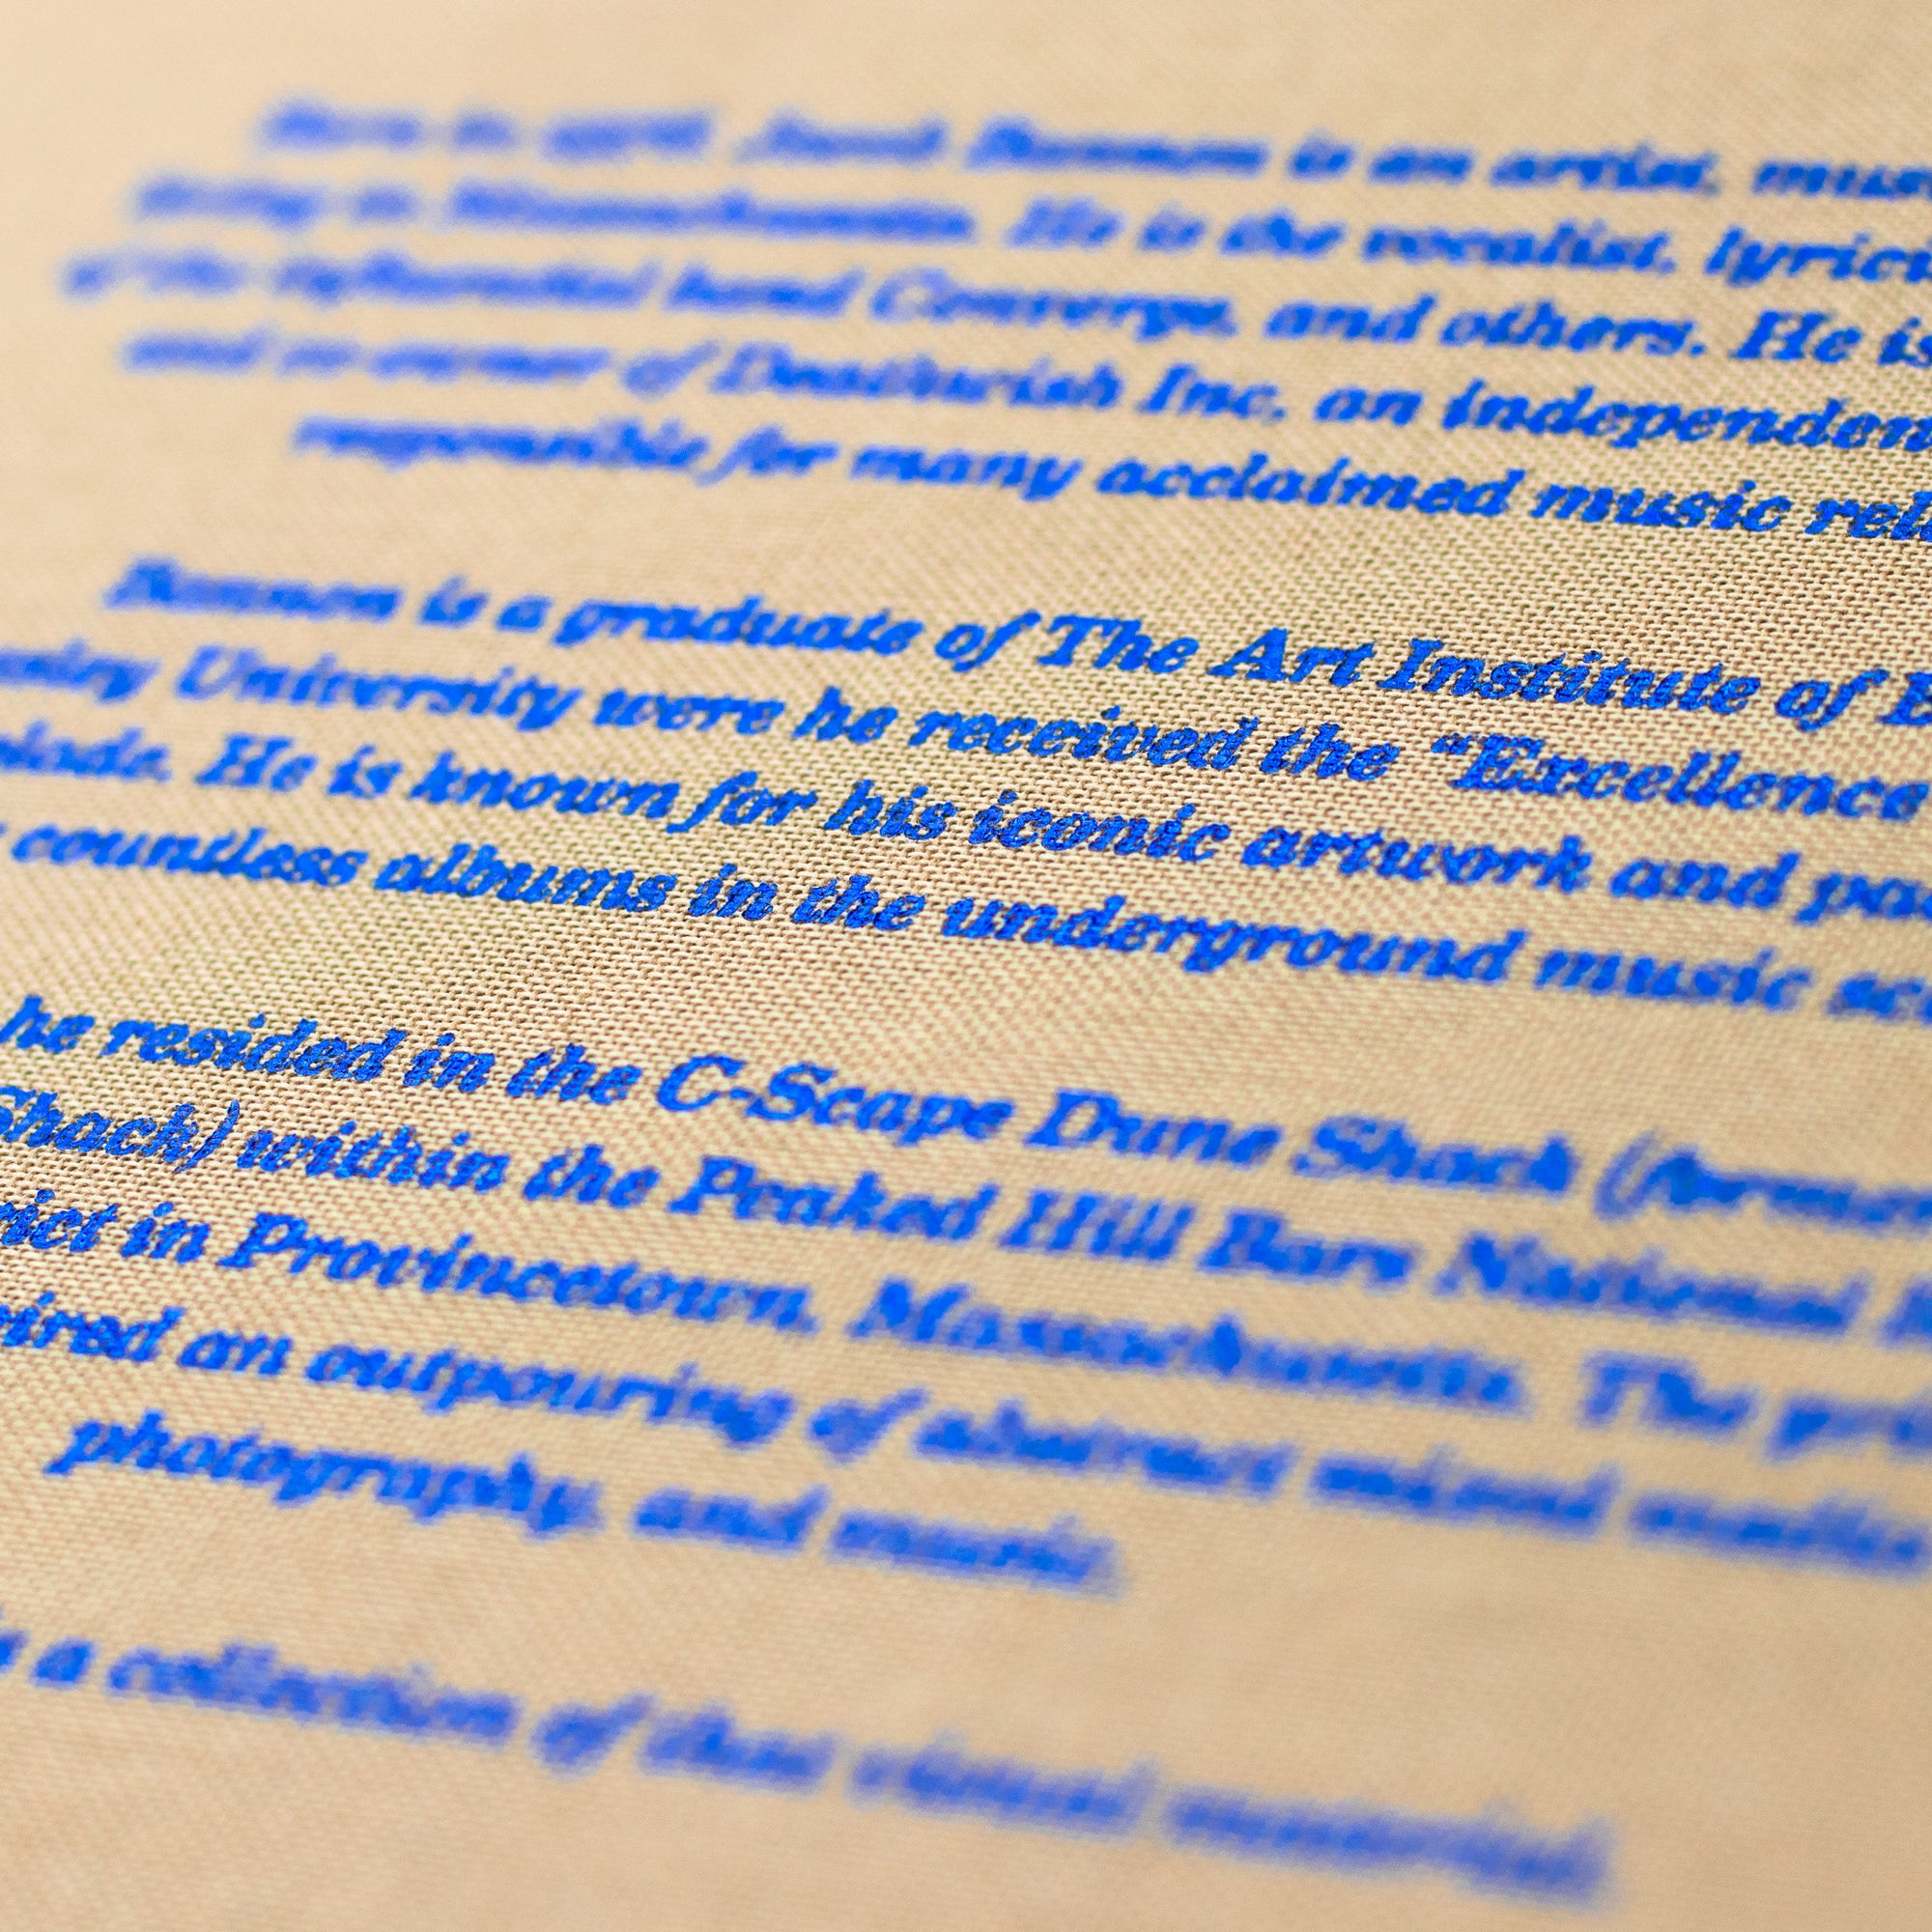 Born in 1976, Jacob Bannon is an artist, mus
living in Massachusetts. He is the vocalist, lyrici
of the influential band Converge, and others. He is
and co-owner of Deathwish Inc, an independen
responsible for many acclaimed music rel
Bannon is a graduate of The Art Institute of B
University were he received the “Excellence
He is known for his iconic artwork and pa
countless albums in the underground music sc
he resided in the C-Scape Dune Shack (form
Shack) within the Peaked Hill Bars National
rict in Provincetown, Massachusetts. The
ired an outpouring of abstract mixed media
photography, and music.
a collection of that visual material.